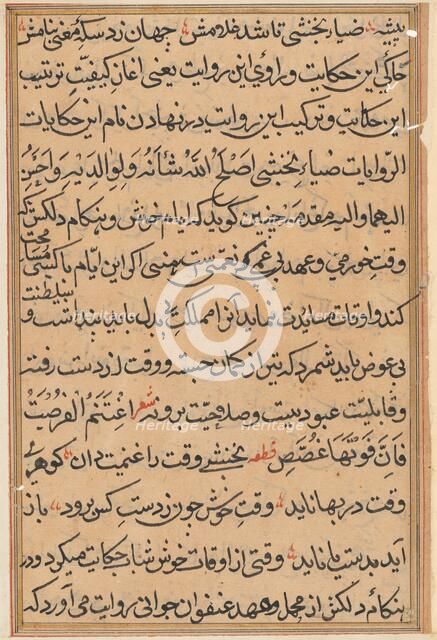 پیشه ضیاء نخشبی تا شد غلامش جهان زد سکه معنی بنامش
حاکی این حکایت و راوی این روایت یعنی آغاز کیفیت ترتیب
این حکایت و ترکیب این روایت در نهادن نام این حکایات
الروایات ضیاء نخشبی اصلح الله شانه ولوالدیه واحسن
الیهما والیه مقدمه چنین گوید که ایام خوش و هنگام دلکش که
وقت خورمی و عهد بی غمی که نعمتی است هنی اگر این ایام با کسی مسامحت
کند و اوقات مساعدت نماید آنرا مملکت بدل باید پنداشت و سلطنت
بی عوض باید شمرد که تیر از کمان جسته و وقت از دست رفته
و قابلیت عبودیت وصلاحیت برود شعر اغتنم الفرصت
فان فوتها غصص قطعه نخشبی وقت را غنیمت دان گوهر
وقت در بها ناید وقت خوش چون ز دست کس برود باز
آید بدست یا ناید وقتی از اوقات خوش شباب حکایت میکرد و در
هنگام دلکش از محل و عهد عنفوان جوانی روایت می آورد که
heritage
Heritage
Heritage
Heritage
Heritage
Heritage